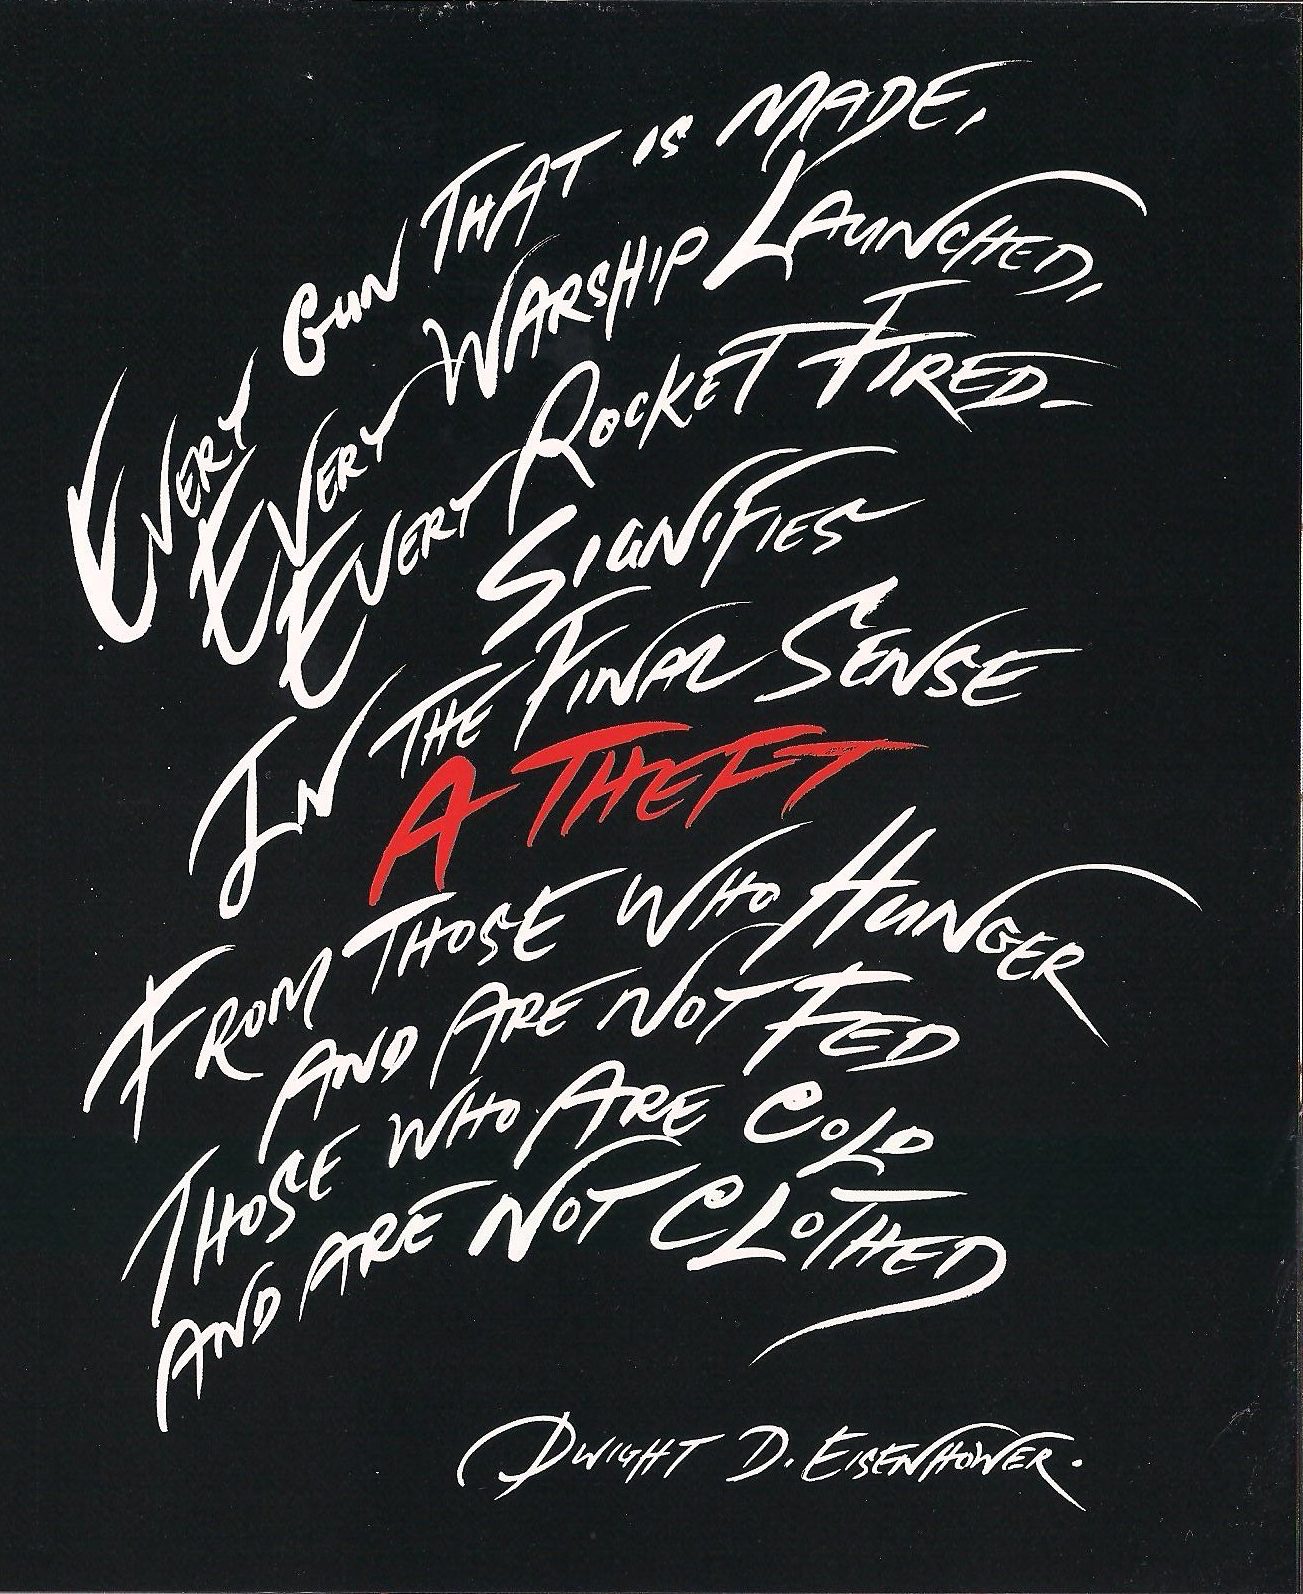 Every Gun that is Made,
Every Warship Launched,
Every Rocket Fired-
Signifies
In the Final Sense
A Theft
From Those Who Hunger
and are not Fed
Those who are Cold
and are not Clothed
Dwight D. Eisenhower.